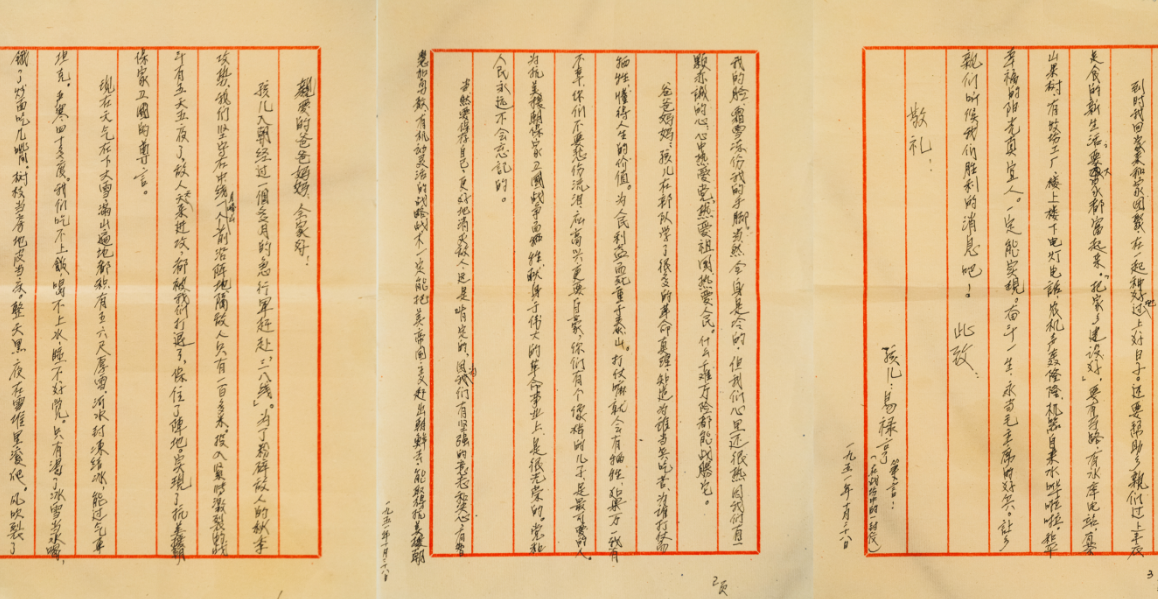 亲爱的爸爸妈妈，全家好！
孩儿入朝经过一个多月的急行军赶赴"三八线"。为了粉碎敌人的秋季
攻势，我们坚守在中线月峰山一人前沿阵地隔敌人只有一百多米。投入紧张激裂的战
斗有五天五夜了，敌人天天来进攻都被我们打退了，保住了阵地。实现了抗美援朝
保家卫国的尊言。
现在天气在下大雪满山遍地都积有五六尺厚雪，河水封冻结冰，能过汽车
坦克。严寒四十多度。我们吃不上饭，喝不上水，睡不好觉。只有渴了冰雪当水喝，
饿了炒面吃几嘴，树枝当房地皮当床。整天黑夜在雪堆里滚爬。风吹裂了
我的脸，霜雪冻伤我的手脚，当然全身是冷的，但我们心里还很热，因我们有一
颗赤诚的心，心里热爱党，热爱祖国，热爱人民。什么千难万险都能战胜它。
爸爸妈妈，孩儿在部队学了很多的革命真理，知道为谁当兵吃苦，为谁打仗而
牺牲，懂得人生的价值。为人民利益而死重于泰山。打仗嘛就会有牺牲，如果万一我有
不幸，你们不要悲伤流泪，应高兴更要自豪，你们有个像样的儿子，是最可爱的人。
为抗美援朝保家卫国战争而牺牲，献身于伟大的革命事业上，是很光荣的。党和
人民永远不会忘记的。
当然要保存自己，更好地消灭敌人，这是肯定的，因为我们有坚强的意志和决心，有智
勇敢，有机动灵活的战略战术，一定能把美帝国主义赶出朝鲜去，能取得抗美援朝
一九五一年十月二十八日
2页
到时我回家和家团聚，在一起种好地过上好日子。还要帮助乡亲们过上丰衣
美食的新生活，要大家都富起来。"把家乡建设好"，要有公路，有水库电站，有
山果树，有牧场工厂，楼上楼下电灯电话，发机声轰隆隆，机器自来水哗啦啦。和平
幸福的阳光真宜人。一定能实现。奋斗一生，永当毛主席的好兵。让乡
亲们听候我们胜利的消息吧！
此致
敬礼！
孩儿：马禄亭 笔言：
（在战场中的一封战）
一九五一年十月二十八日
3